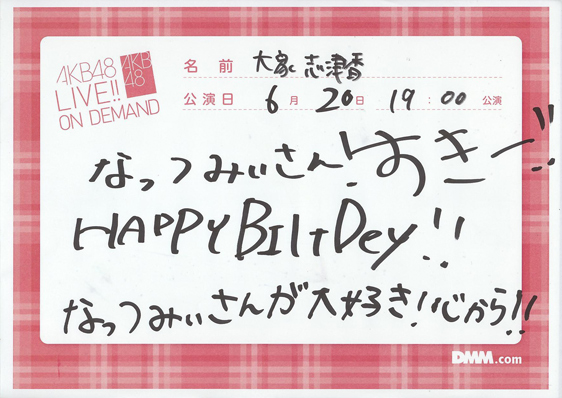 AKB48
LIVE!!
ON DEMAND
AKB
48
名前 大家志津香
公演日 6月20日 19:00 公演
なっつみぃさん!すきー!!
HAPPY BIltDey!!
なっつみぃさんが大好き!心から!!
DMM.com